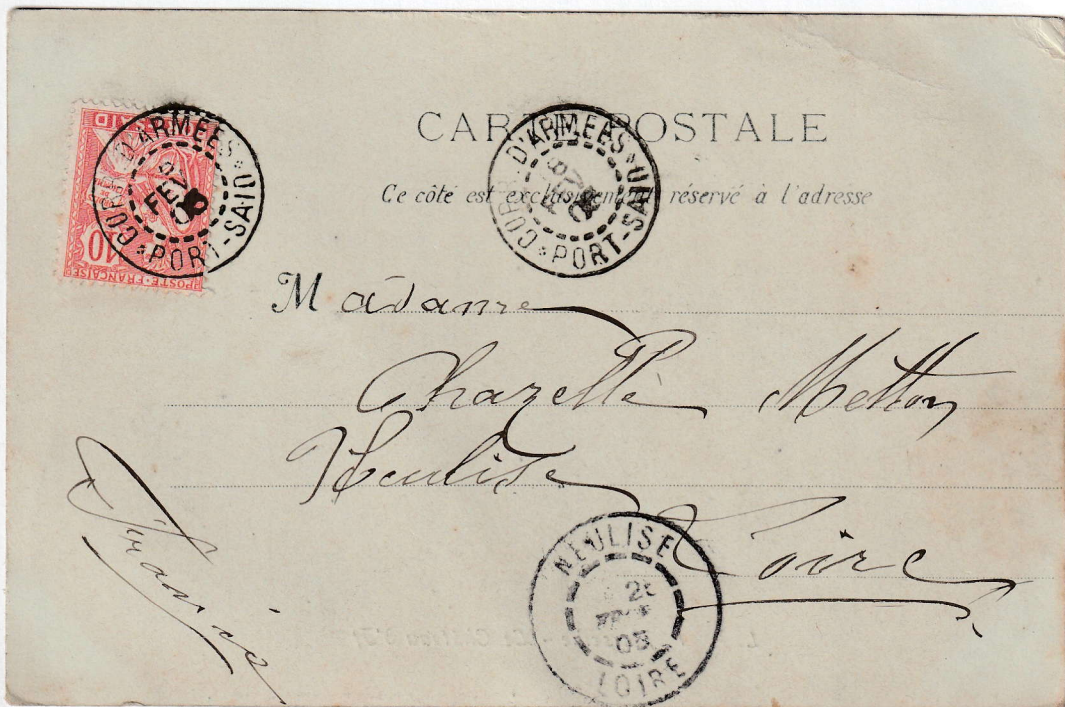 CARTE POSTALE
Ce côté est exclusivement réservé à l'adresse
CORR. D'ARMÉES
PORT-SAID
FEVR
CORR. D'ARMÉES
PORT-SAID
10
POSTE FRANÇAISE
Madame
Chazelle Metton
Neulise
Loire
NEULISE
LOIRE